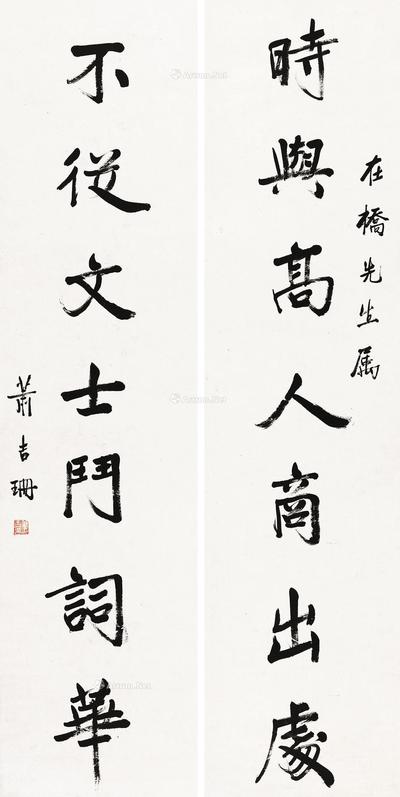 在橋先生属
時與高人商出處
不從文士鬥詞華
蕭吉珊